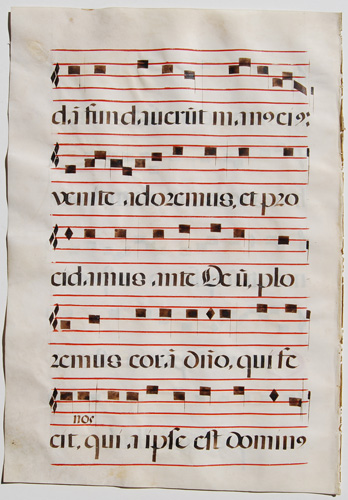 dã fundaverũt manꝰ eiꝰ:
venite adoremus, et pro
cidamus ante Deũ, plo
remus corã dño, qui fe
nos
cit, qui a ipse est dominꝰ